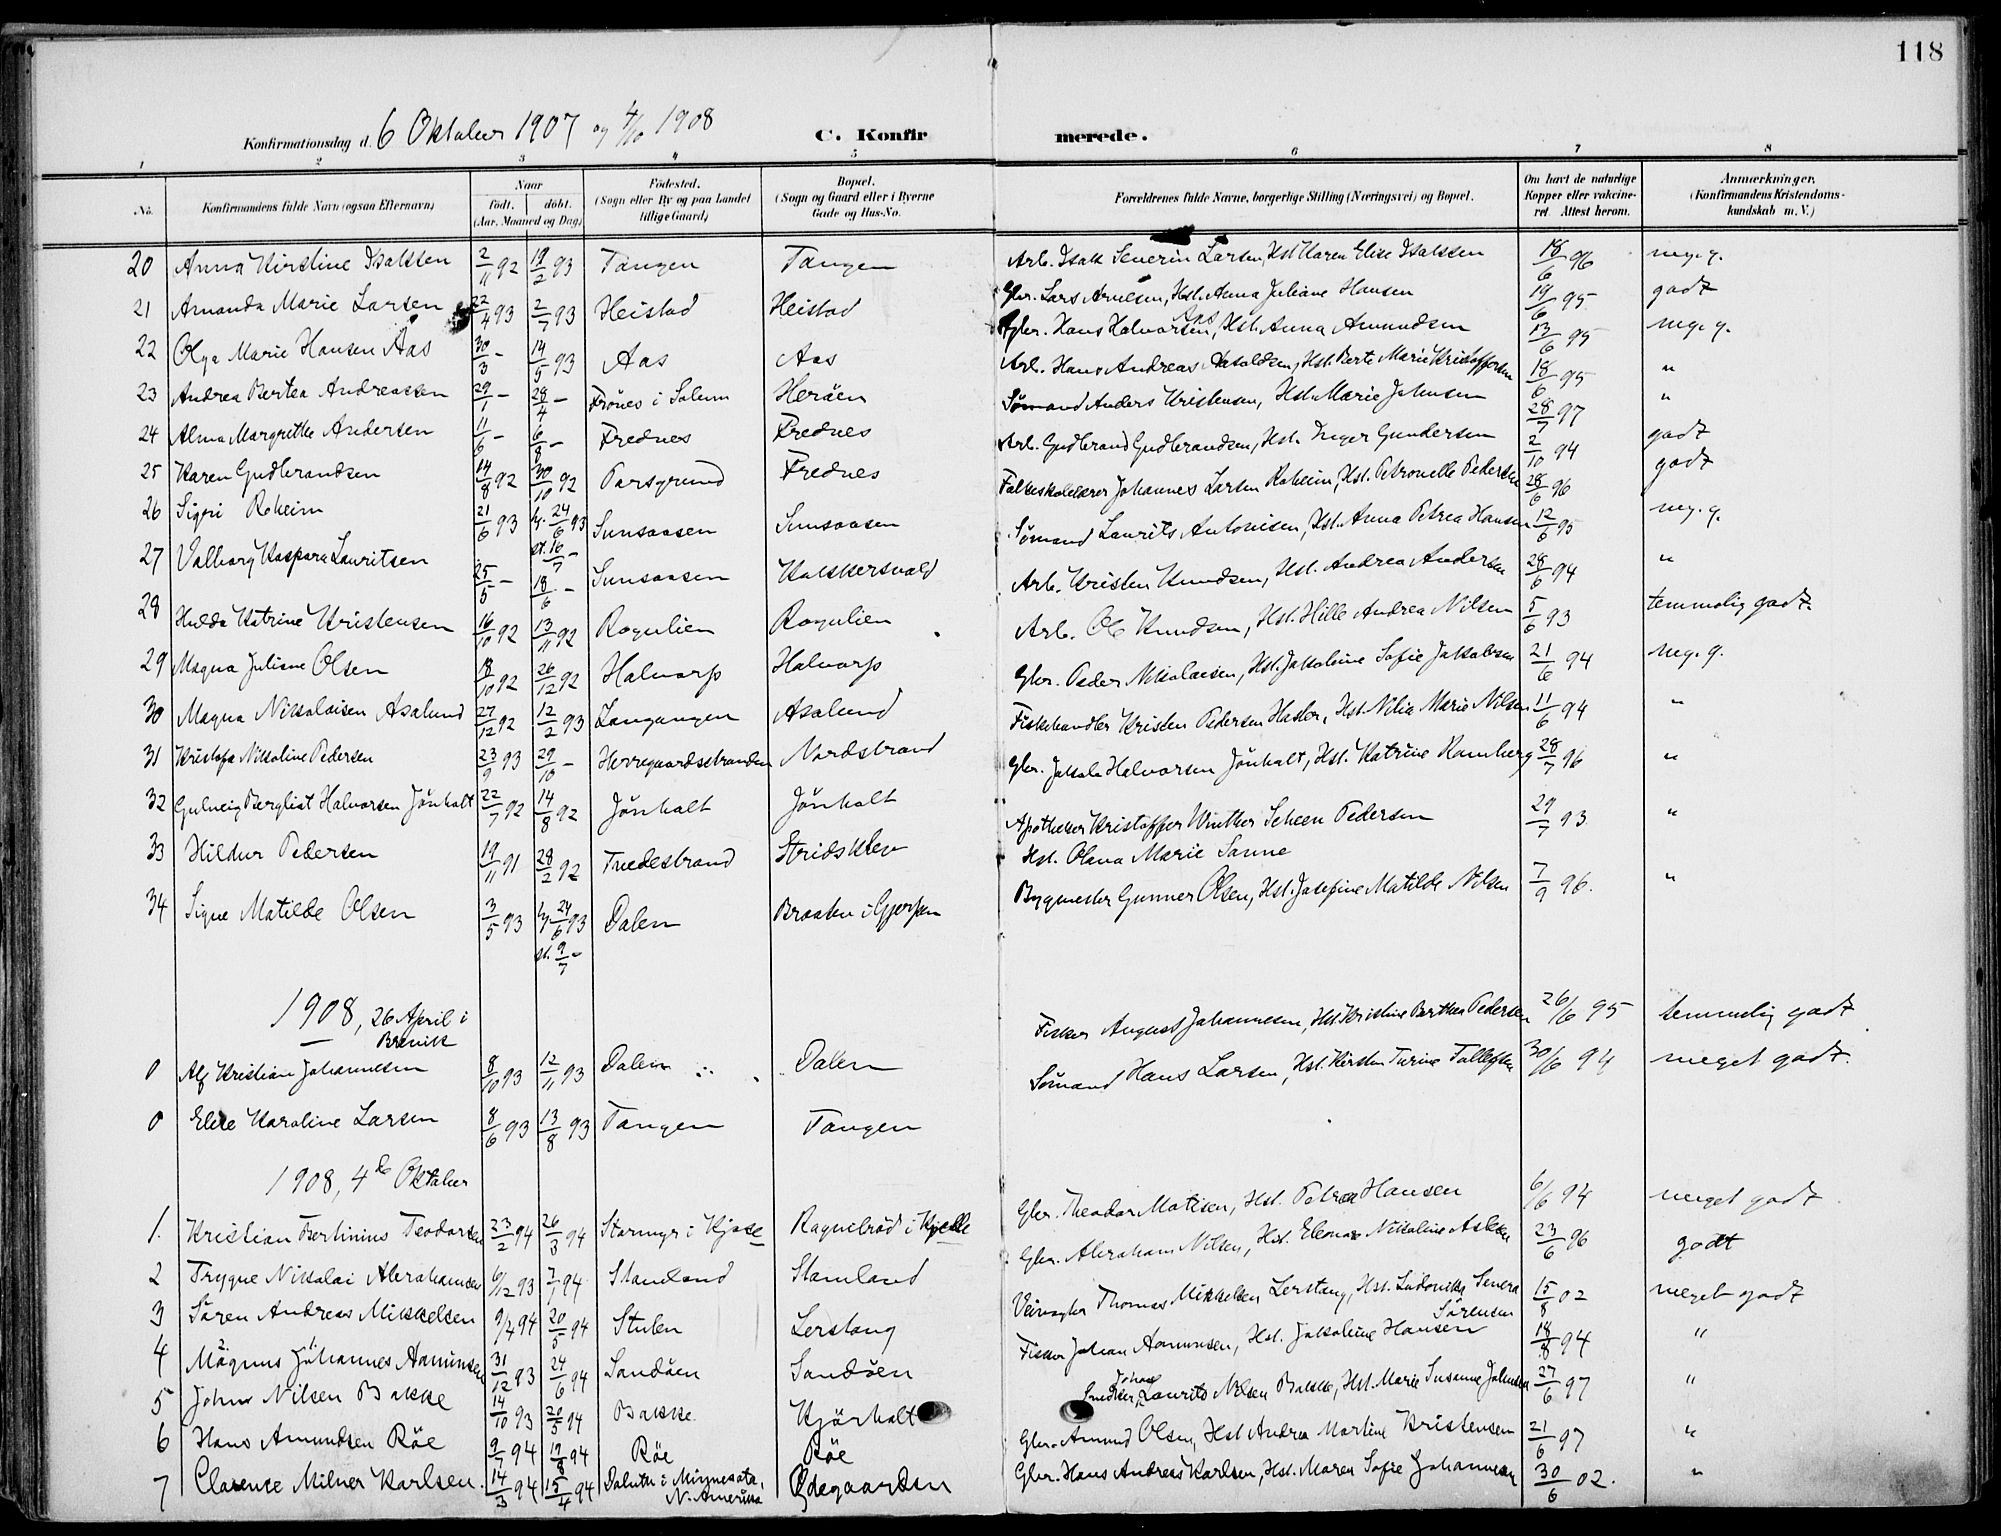 118
Konfirmationsdag d. 6 Oktober 1907 og 4/10 1908
C. Konfirmerede.
1 2 3 4 5 6 7 8
No. | Konfirmandens fulde Navn (ogsaa Efternavn) | Naar født. døbt. (Aar, Maaned og Dag) | Fødested. (Sogn eller By og paa Landet tillige Gaard) | Bopæl. (Sogn og Gaard eller i Byerne Gade og Hus-No. | Forældrenes fulde Navne, borgerlige Stilling (Næringsvei) og Bopæl. | Om havt de naturlige Kopper eller vakcineret. Attest herom. | Anmærkninger, (Konfirmandens Kristendomskundskab m. V.)
20 Anna Kirstine Isaksen 2/11 92 19/2 93 Tangen Tangen Arb. Isak Severin Larsen, Hst. Karen Elise Isaksen 18/6 96 meg. g.
21 Amanda Marie Larsen 22/4 93 2/7 93 Heistad Heistad Gbr. Lars Arnesen, Hst. Anna Juliane Hansen 19/6 95 godt
22 Olga Marie Hansen Aas 30/3 - 14/5 93 Aas Aas Gbr. Hans Halvorsen Aas, Hst. Anna Amundsen 13/6 95 meg. g.
23 Andrea Bertea Andreassen 29/1 - 28/4 - Frönes i Solum Heröen Arb. Hans Andreas Antoldsen, Hst. Berte Marie Kristoffersen 18/6 95 "
24 Alma Margrethe Andersen 11/6 - 6/8 - Frednes Frednes Sømand Anders Kristensen, Hst. Marie Johnsen 28/7 97 "
25 Karen Gudbrandsen 14/8 92 30/10 92 Porsgrund Frednes Arb. Gudbrand Gudbrandsen, Hst. Inger Gundersen 2/10 94 godt
26 Sigri Roheim 21/6 93 hj. 24/6 93 st. 16/7 - Sunsaasen Sunsaasen Folkeskolelærer Johannes Larsen Roheim, Hst. Petronelle Pedersen 28/6 96 godt
27 Valborg Kaspara Lauritsen 25/5 - 18/6 - Sunsaasen Kokkersvold Sømand Laurits Antonisen, Hst. Anna Petrea Hansen 12/6 95 meg. g.
28 Hulda Katrine Kristensen 16/10 92 13/11 92 Rognlien Rognlien Arb. Kristen Knudsen, Hst. Andrea Andersen 28/6 94 "
29 Magna Juliane Olsen 18/10 92 26/12 92 Halvarp Halvarp Arb. Ole Knudsen, Hst. Hille Andrea Nilsen 5/6 93 temmelig godt.
30 Magna Nikolaisen Asalund 27/12 92 12/2 93 Langangen Asalund Gbr. Peder Nikolaisen, Hst. Jakobine Sofie Jakobsen 21/6 94 meg. g.
31 Kristofa Nikoline Pedersen 23/9 93 29/10 - Herregaardsstranden Nordstrand Fiskehandler Kristen Pedersen Hasler, Hst. Nilia Marie Nilsen 11/6 94 "
32 Gulveig Bergliot Halvorsen Jönholt 22/7 92 14/8 92 Jönholt Jönholt Gbr. Jakob Halvorsen Jönholt, Hst. Katrine Ramberg 28/7 96 "
33 Hildur Pedersen 19/11 91 28/2 92 Tvedestrand Stridsklev Apotheker Kristoffer Winther Scheen Pedersen Hst. Olava Marie Sanne 29/7 93 "
34 Signe Matilde Olsen 3/5 93 hj. 24/6 93 st. 9/7 - Dalen Braaten i Gjerpen Bygmester Gunner Olsen, Hst. Josefine Matilde Nilsen 7/9 96. "
1908, 26 April i Brevik
0 Alf Kristian Johannesen 8/10 93 12/11 93 Dalen Dalen Fisker August Johannesen, Hst. Kristine Berthea Pedersen 26/6 95 temmelig godt
0 Elise Karoline Larsen 8/6 93 13/8 93 Tangen Tangen Sömand Hans Larsen, Hst. Kirsten Turine Tollefsen 30/6 94 meget godt.
1908, 4de Oktober
1. Kristian Bertinius Teodorsen 23/2 94 26/3 94 Stormyr i Kjose Ragnebröd i Kjelle Gbr. Theodor Matisen, Hst. Petrea Hansen 6/6 94 meget godt
2 Trygve Nikolai Abrahamsen 6/12 93 7/1 94 Stamland Stamland Gbr. Abraham Nilsen, Hst. Eleonora Nikoline Aslesen 23/6 96 godt
3 Sören Andreas Mikkelsen 9/4 94 20/5 94 Stulen Lerstang Veivogter Thomas Mikkelsen Lerstang, Hst. Ludovikke Severa Sörensen 15/8 02 meget godt
4 Magnus Johannes Aamunsen 31/12 93 24/6 94 Sandöen Sandöen Fisker Johan Aamunsen, Hst. Jakobine Hansen 18/8 94 "
5 Johns Nilsen Bakke 14/10 93 20/5 94 Bakke Kjörholt Snedker, Johan Laurits Nilsen Bakke, Hst. Marie Susanne Johnsen 27/6 97 "
6 Hans Amundsen Röe 9/7 94 19/8 94 Röe Röe Gbr. Amund Olsen, Hst. Andrea Martine Kristensen 21/6 97 "
7 Clarence Milner Karlsen 14/3 94 15/4 94 Duluth i Minnesota, N. Amerika Ødegaarden Gbr. Hans Andreas Karlsen, Hst. Maren Sofie Johannesen 30/6 02. "